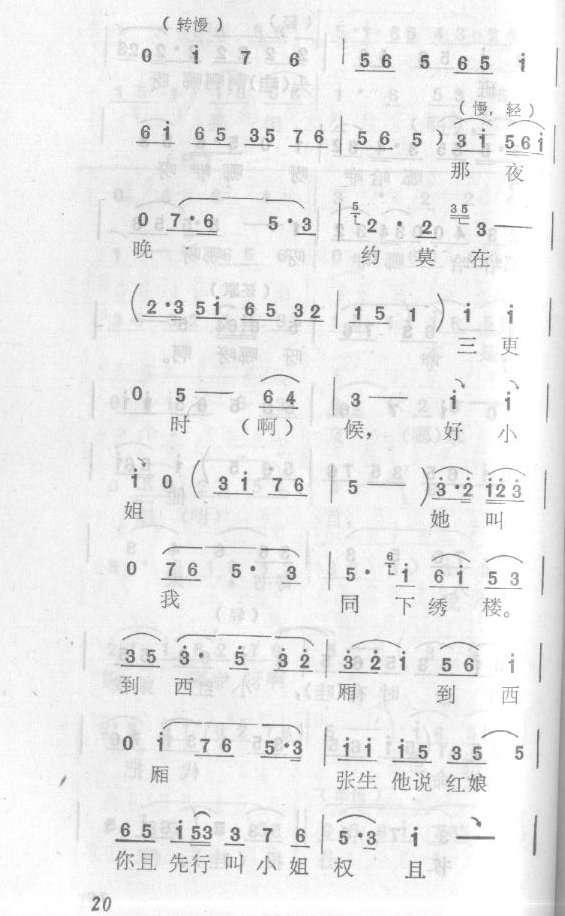 （转慢）
0 i 7 6 | 56 5 65 i |
（慢，轻）
6i 65 35 76 | 56 5 ) 3i 56i |
那 夜
0 7·6 5·3 | 5 2· 2 35 3 — |
晚 约 莫 在
( 2·3 5i 65 32 | 15 1 ) i i |
三 更
0 5 — 64 | 3 — i i |
时 （啊） 候， 好 小
i 0 ( 3i 76 | 5 — ) 3·2 i23 |
姐 她 叫
0 76 5· 3 | 5· 6 i 6i 53 |
我 同 下 绣 楼。
35 3· 5 32 | 32i 56 i |
到 西 厢 到 西
0 i 76 5·3 | ii i5 35 5 |
厢 张生 他说 红娘
65 i53 3 7 6 | 5·3 i — |
你且 先行 叫 小 姐 权 且
20